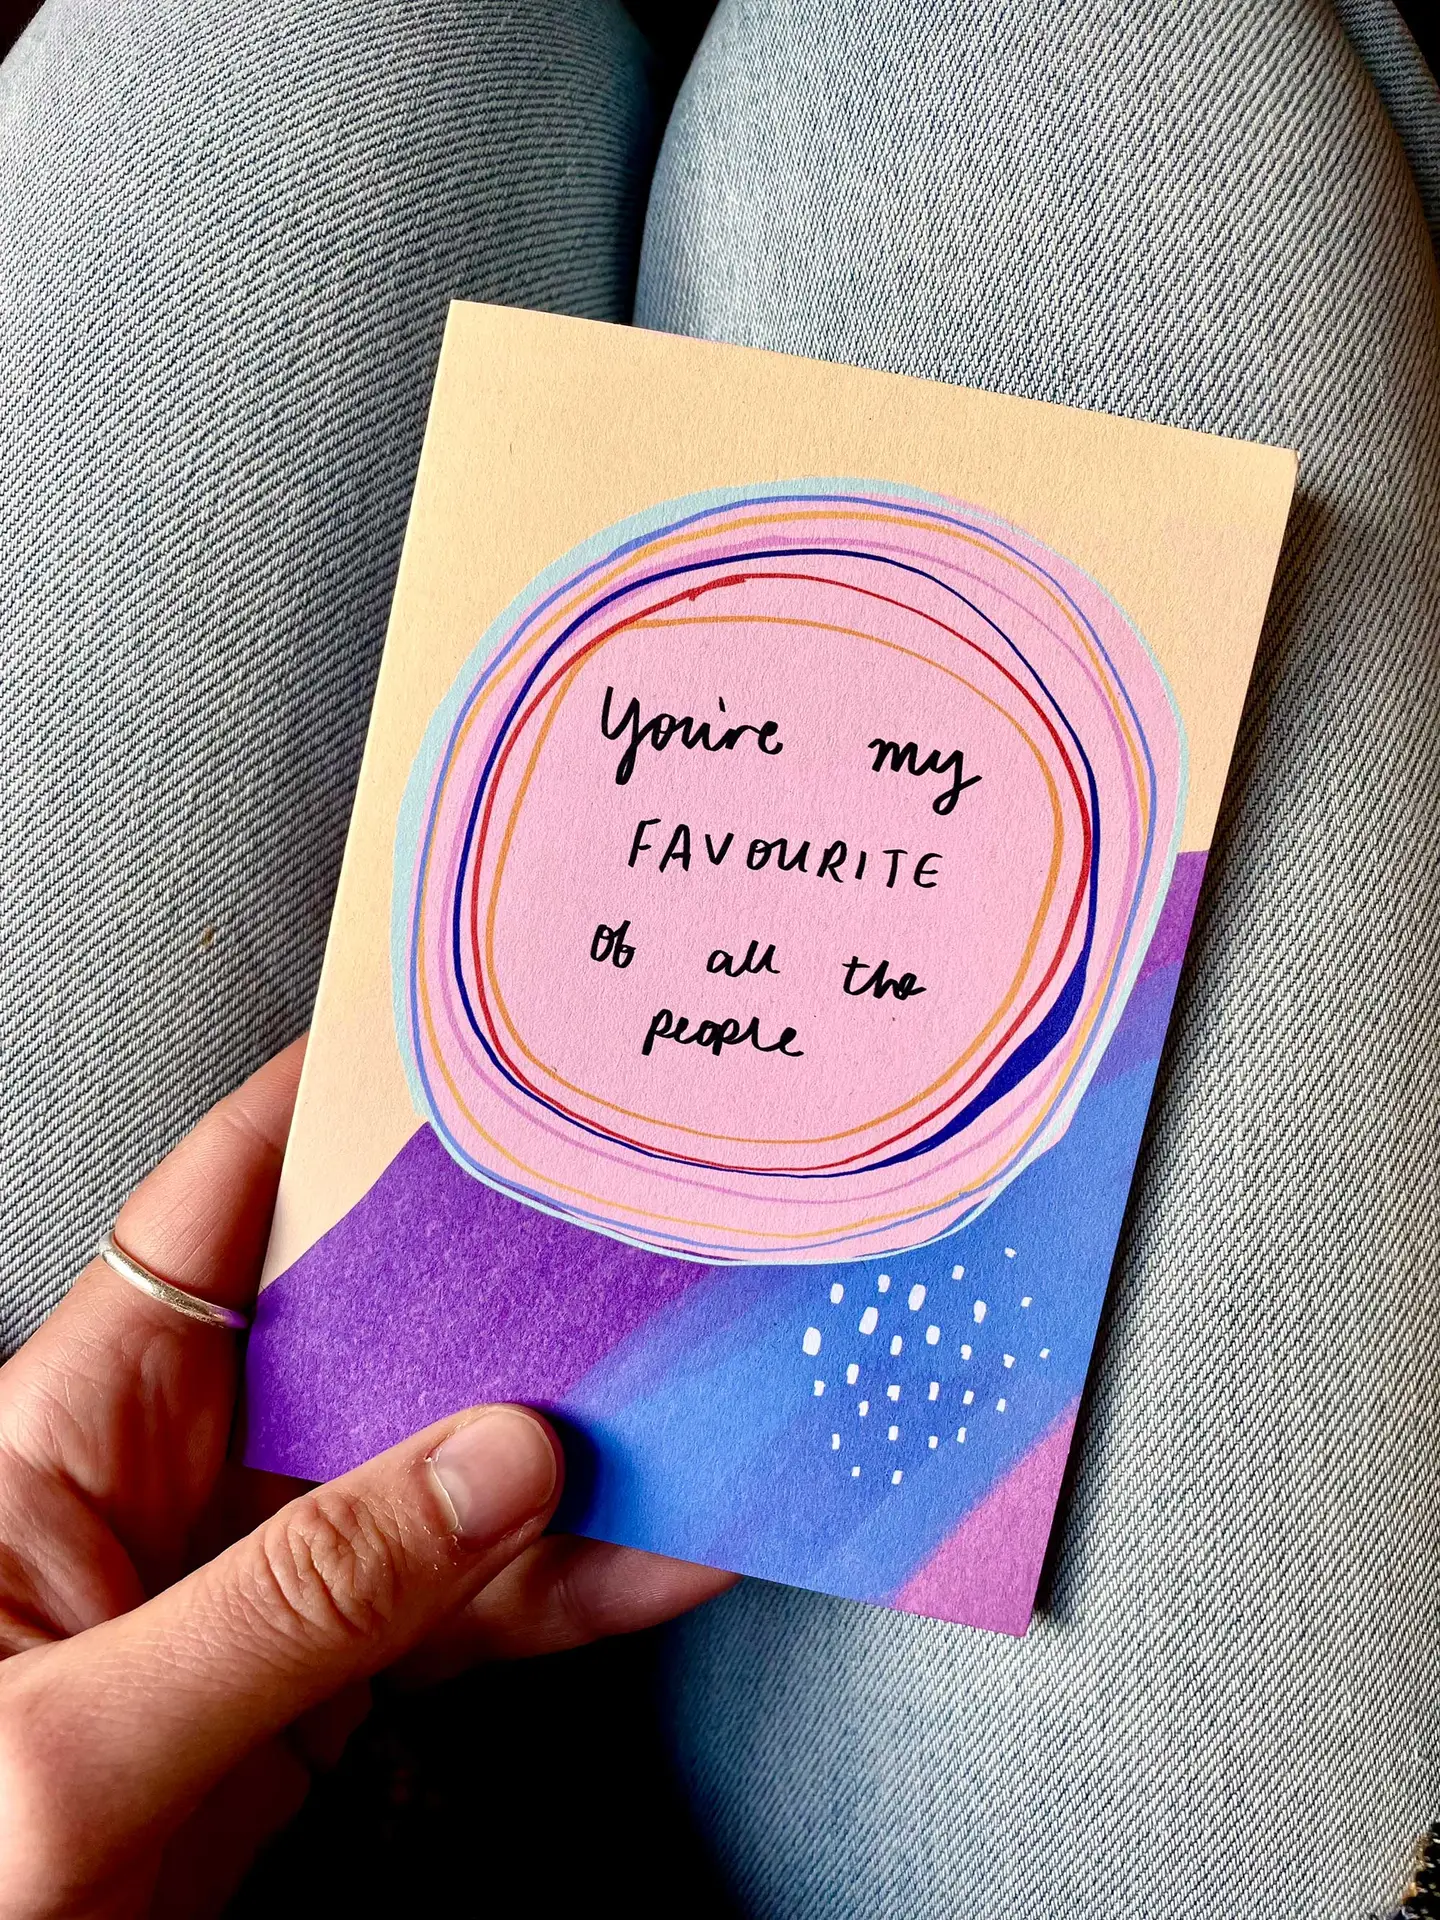 You're my
FAVOURITE
of all the
people